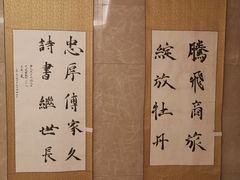 騰飛商旅
綻放牡丹
忠厚傳家久
詩書繼世長